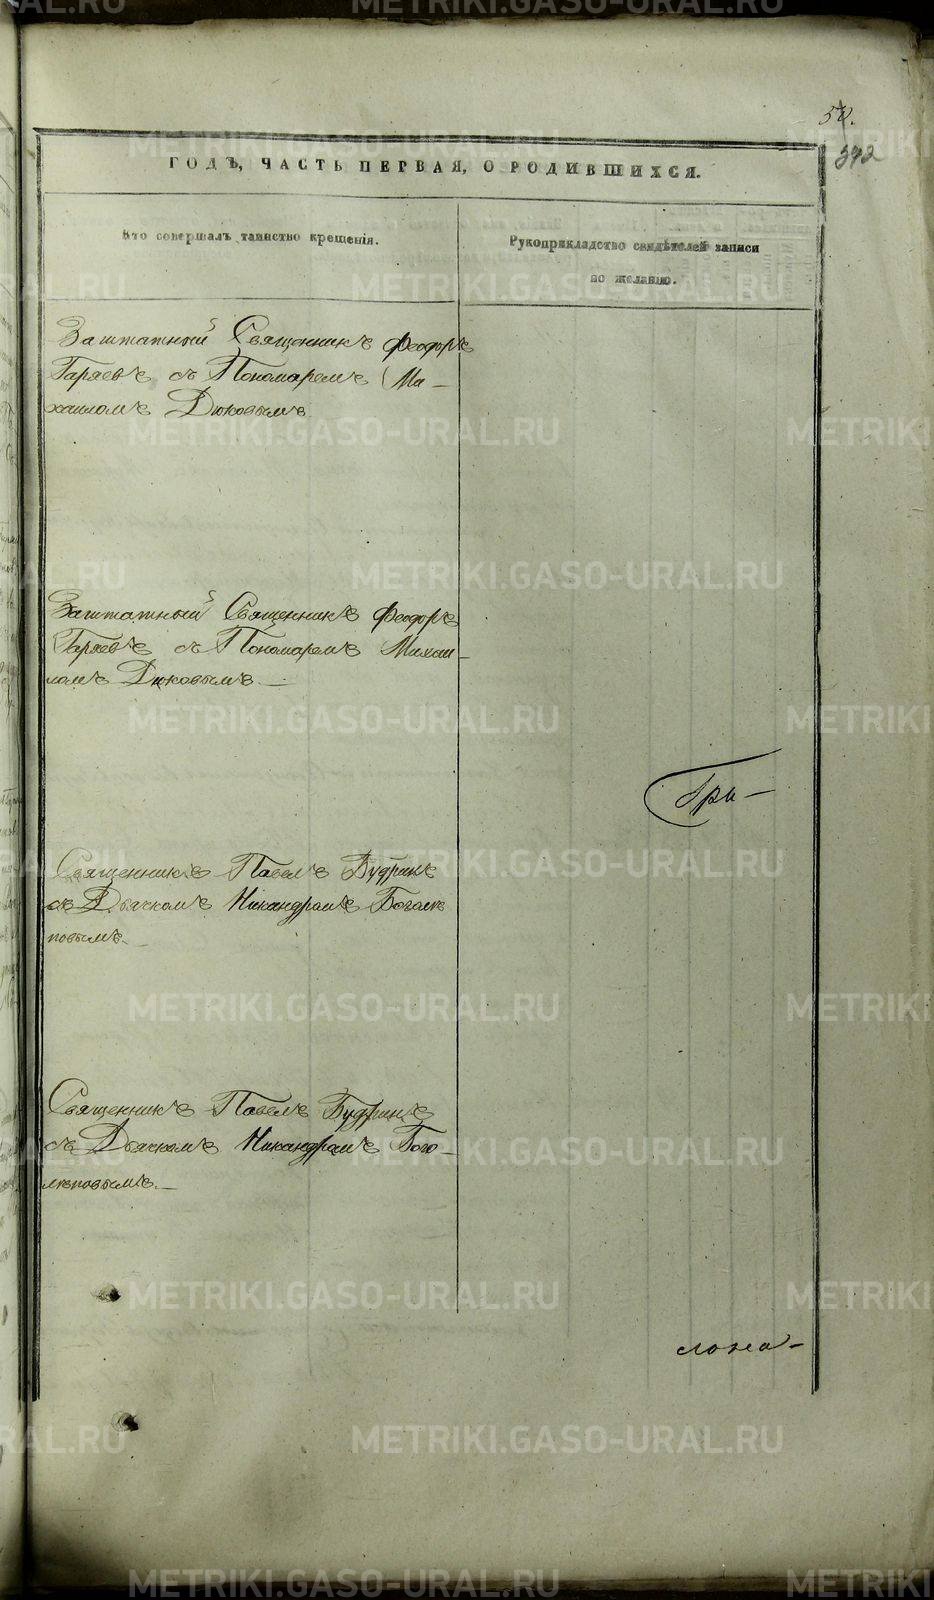 50.
342
ГОДЪ, ЧАСТЬ ПЕРВАЯ, О РОДИВШИХСЯ.
Кто совершалъ таинство крещенія.
Рукоприкладство свидѣтелей записи
по желанію.
Заштатный Священникъ Феодоръ
Гаряевъ съ Пономаремъ Ми-
хаиломъ Дюковымъ
Заштатный Священникъ Феодоръ
Гаряевъ съ Пономаремъ Михаи-
ломъ Дюковымъ.
Гри-
Священникъ Павелъ Будринъ
съ Дьячкомъ Никандромъ Боголѣ
повымъ.
Священникъ Павелъ Будринъ
съ Дьячкомъ Никандромъ Бого-
лѣповымъ.
ложа-
METRIKI.GASO-URAL.RU